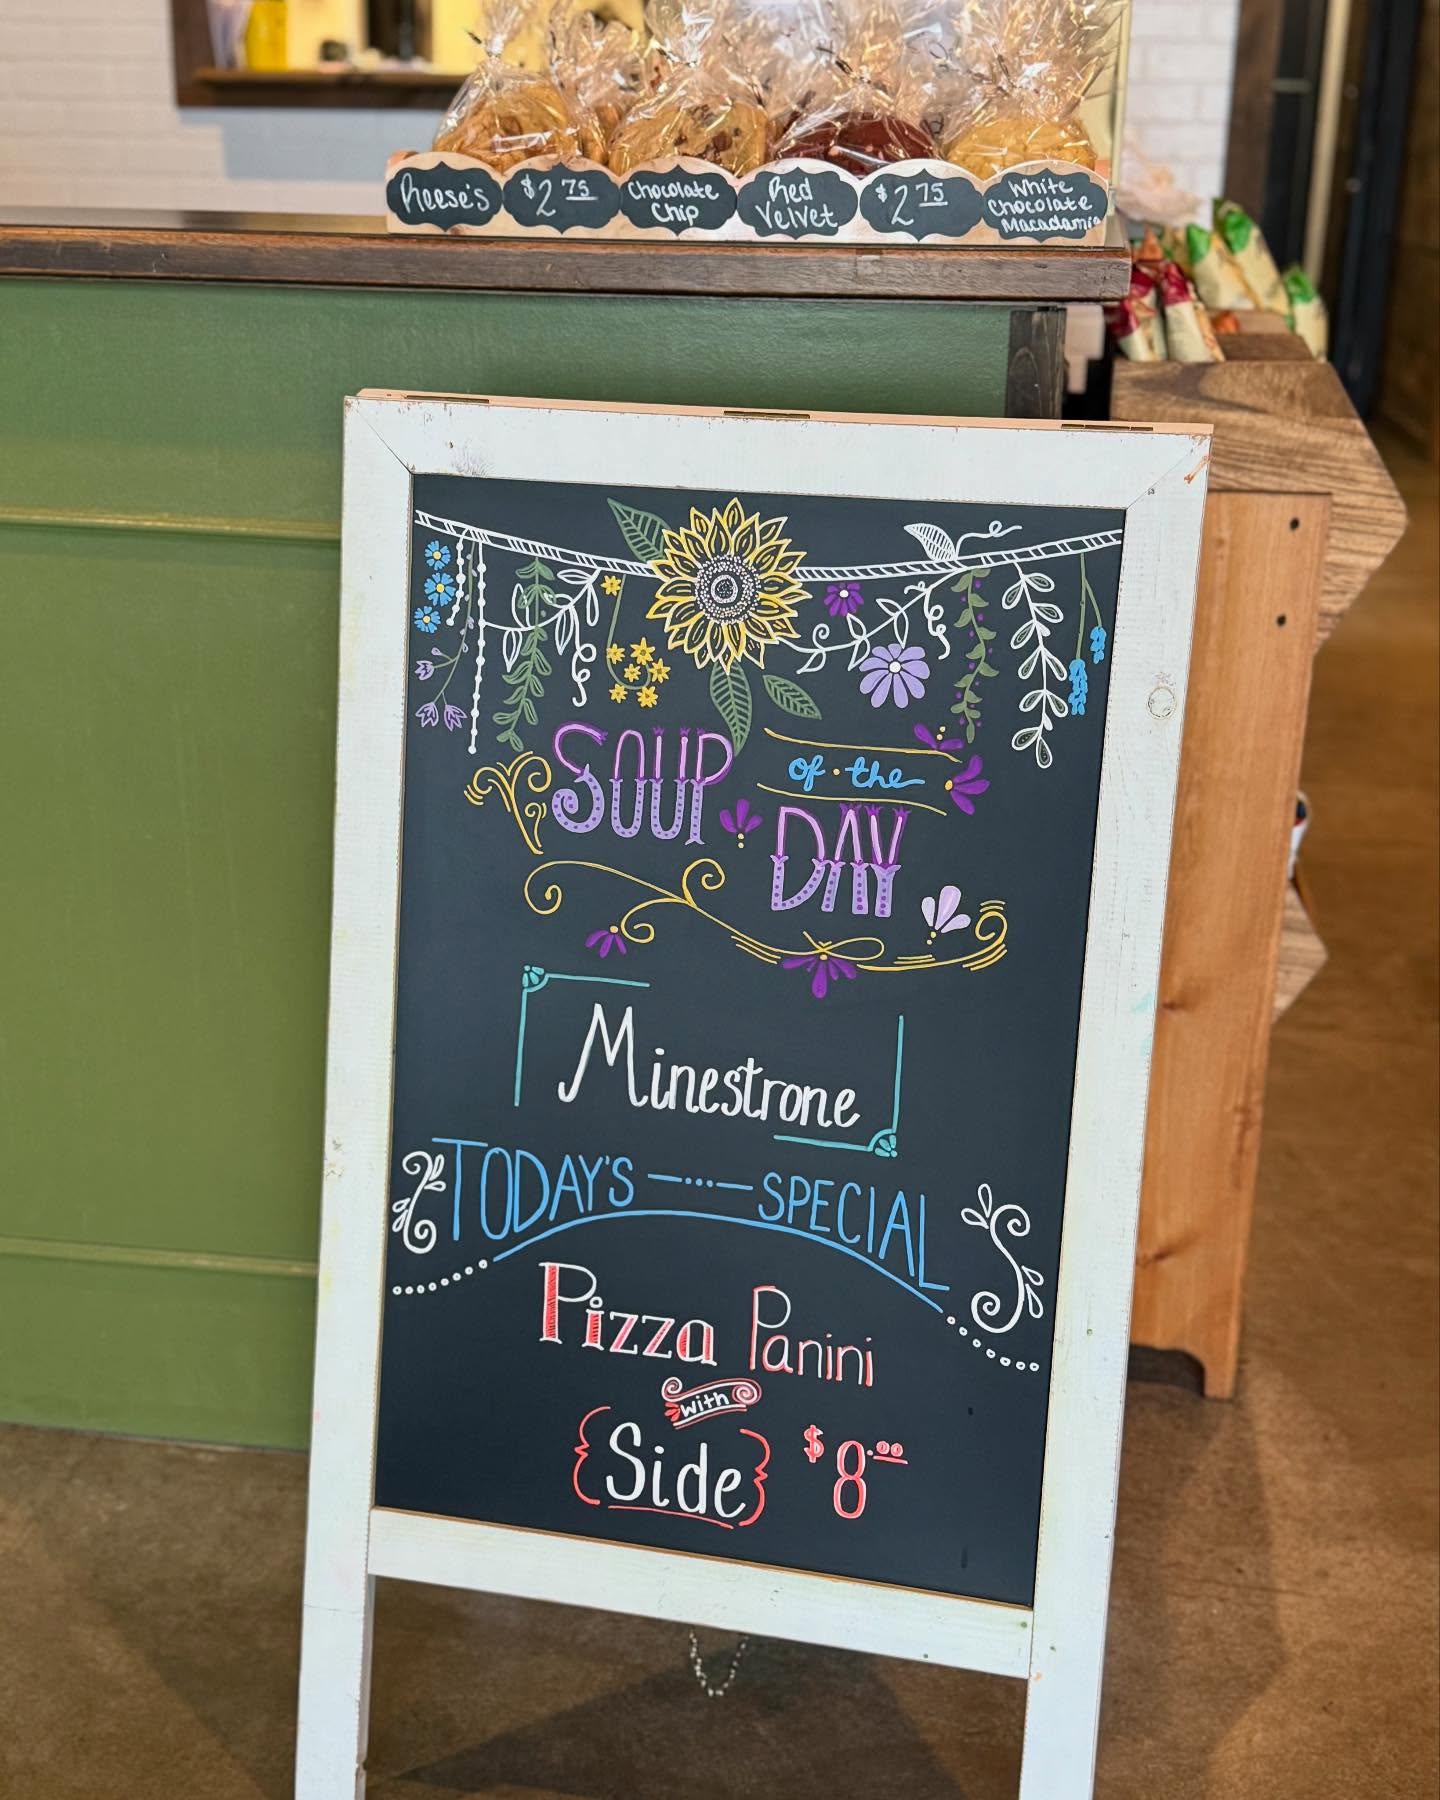 Reese's
$2 75
Chocolate
Chip
Red
Velvet
$2 75
White
Chocolate
Macadamia
SOUP of • the
DAY
Minestrone
TODAY'S SPECIAL
Pizza Panini
with
Side $8.00